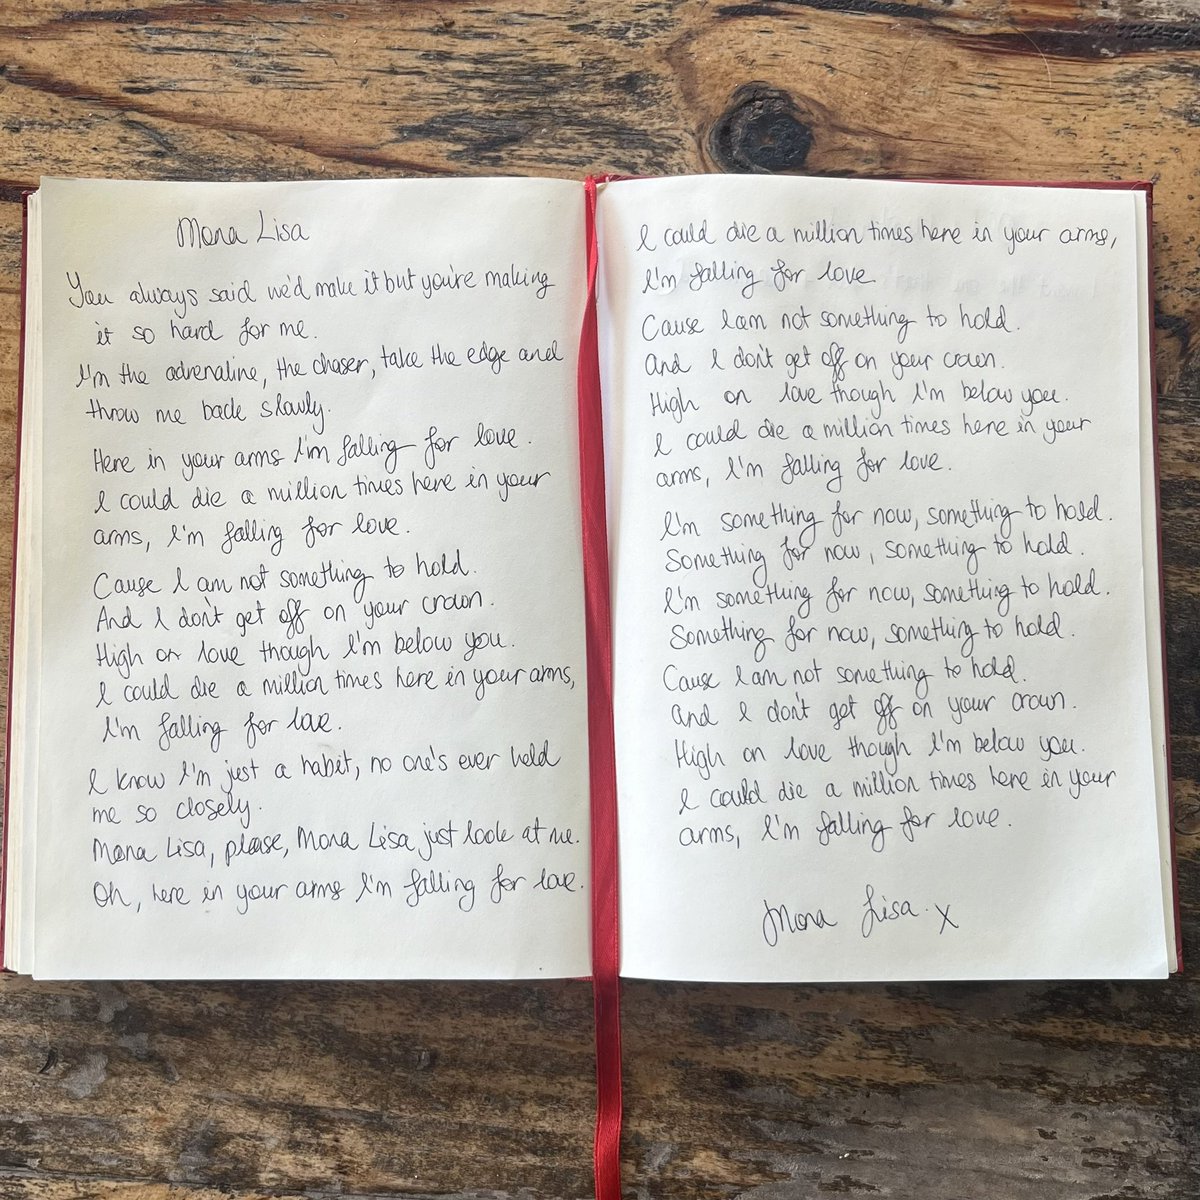 Mona Lisa
You always said we'd make it but you're making
it so hard for me.
I'm the adrenaline, the chaser, take the edge and
throw me back slowly.
Here in your arms I'm falling for love.
I could die a million times here in your
arms, I'm falling for love.
Cause I am not something to hold.
And I don't get off on your crown.
High on love though I'm below you.
I could die a million times here in your arms,
I'm falling for love.
I know I'm just a habit, no one's ever held
me so closely.
Mona Lisa, please, Mona Lisa just look at me.
Oh, here in your arms I'm falling for love.
I could die a million times here in your arms,
I'm falling for love
Cause I am not something to hold.
And I don't get off on your crown.
High on love though I'm below you.
I could die a million times here in your
arms, I'm falling for love.
I'm something for now, something to hold.
Something for now, something to hold.
I'm something for now, something to hold.
Something for now, something to hold.
Cause I am not something to hold.
And I don't get off on your crown.
High on love though I'm below you.
I could die a million times here in your
arms, I'm falling for love.
Mona Lisa. X